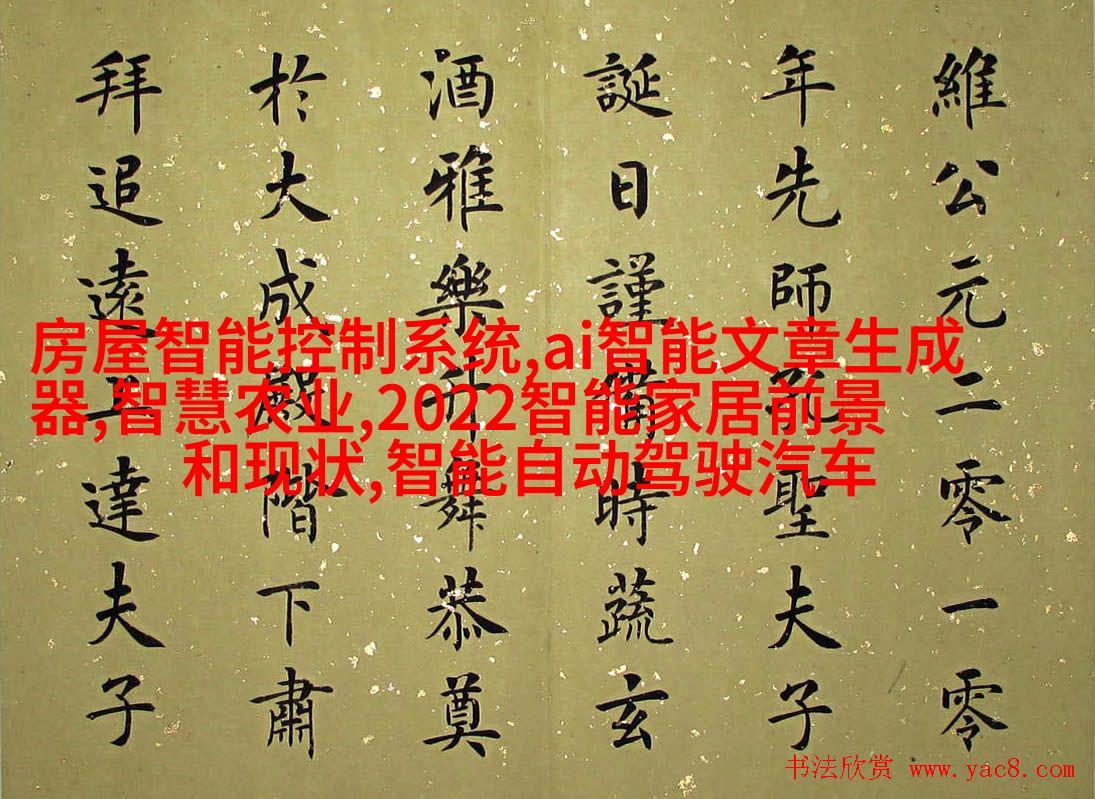 維公元二零一零
年先師孔聖夫子
誕日謹備時蔬玄
酒雅樂升舞恭奠
於大成殿階下肅
拜追遠上達夫子
房屋智能控制系统,ai智能文章生成
器,智慧农业,2022智能家居前景
和现状,智能自动驾驶汽车
书法欣赏 www.yac8.com